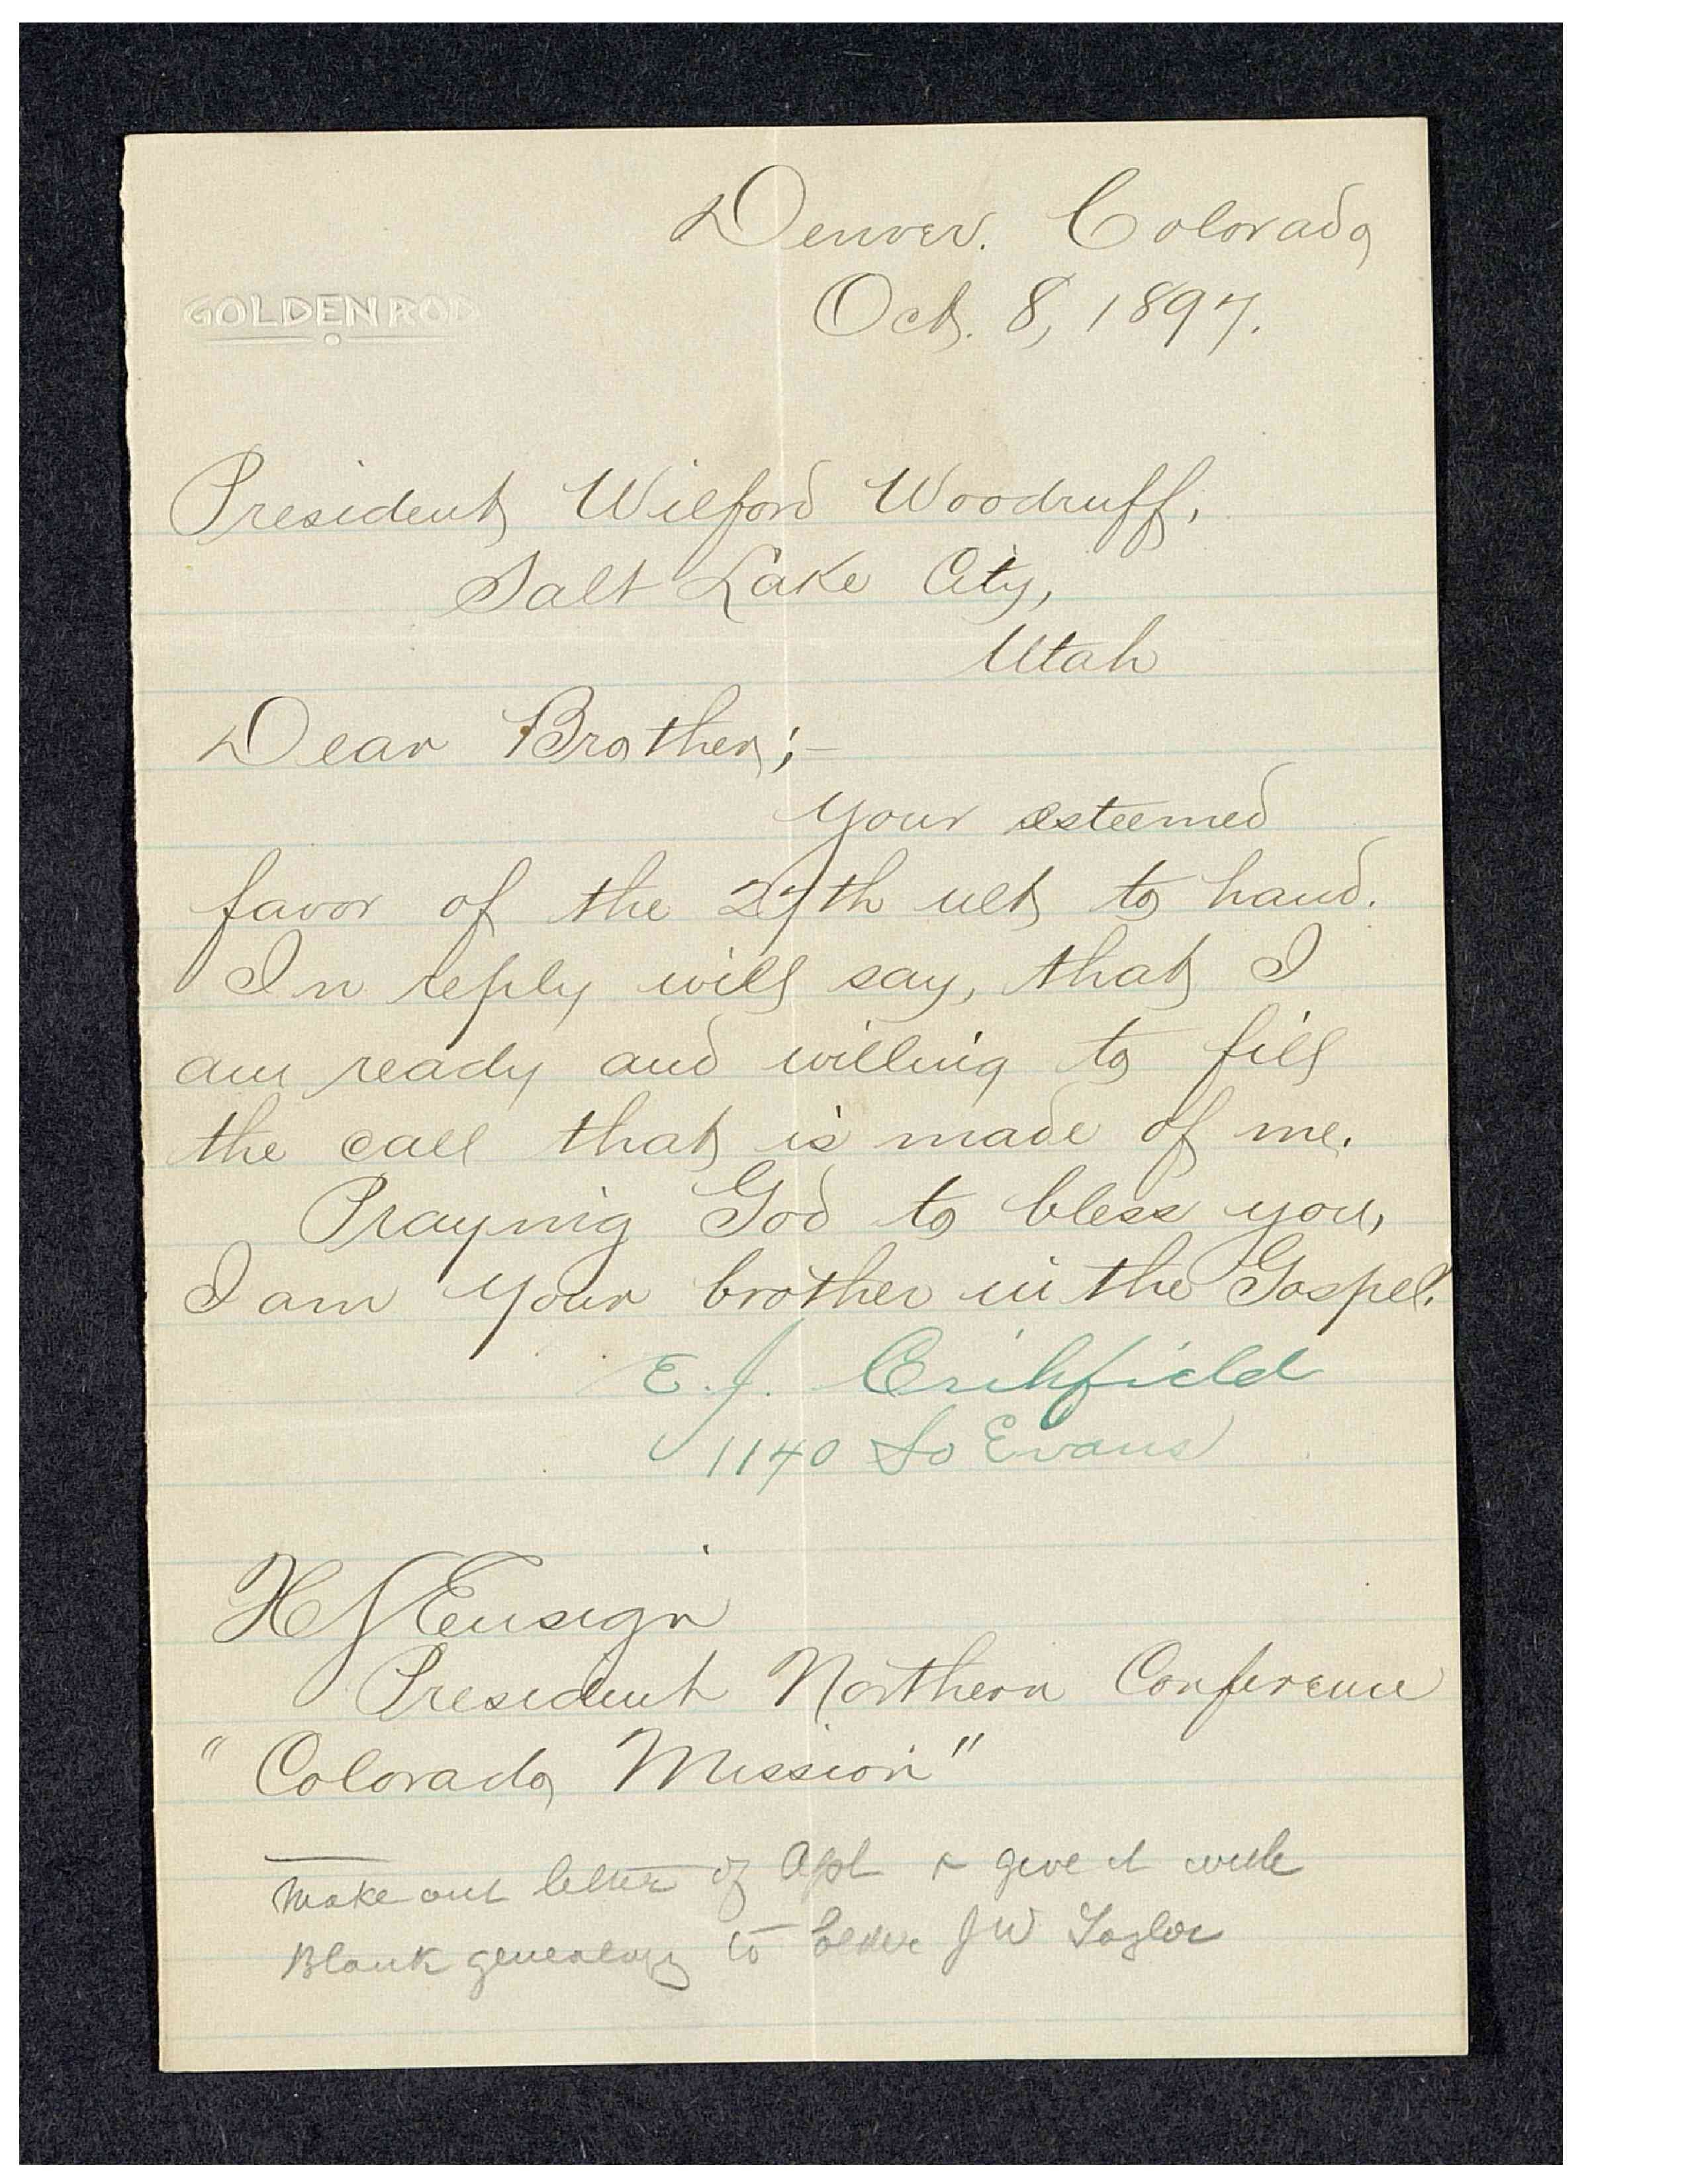 Denver. Colorado
Oct. 8, 1897.
GOLDENROD
President Wilford Woodruff,
Salt Lake City,
Utah
Dear Brother;-
Your esteemed
favor of the 27th ult to hand.
In reply will say, that I
am ready and willing to fill
the call that is made of me.
Praying God to bless you,
I am your brother in the Gospel.
E. J. Crihfield
1140 So Evans
H S Ensign
President Northern Conference
"Colorado Mission"
Make out letter of Apt & give it with
Blank genealogy to Elder J W Taylor